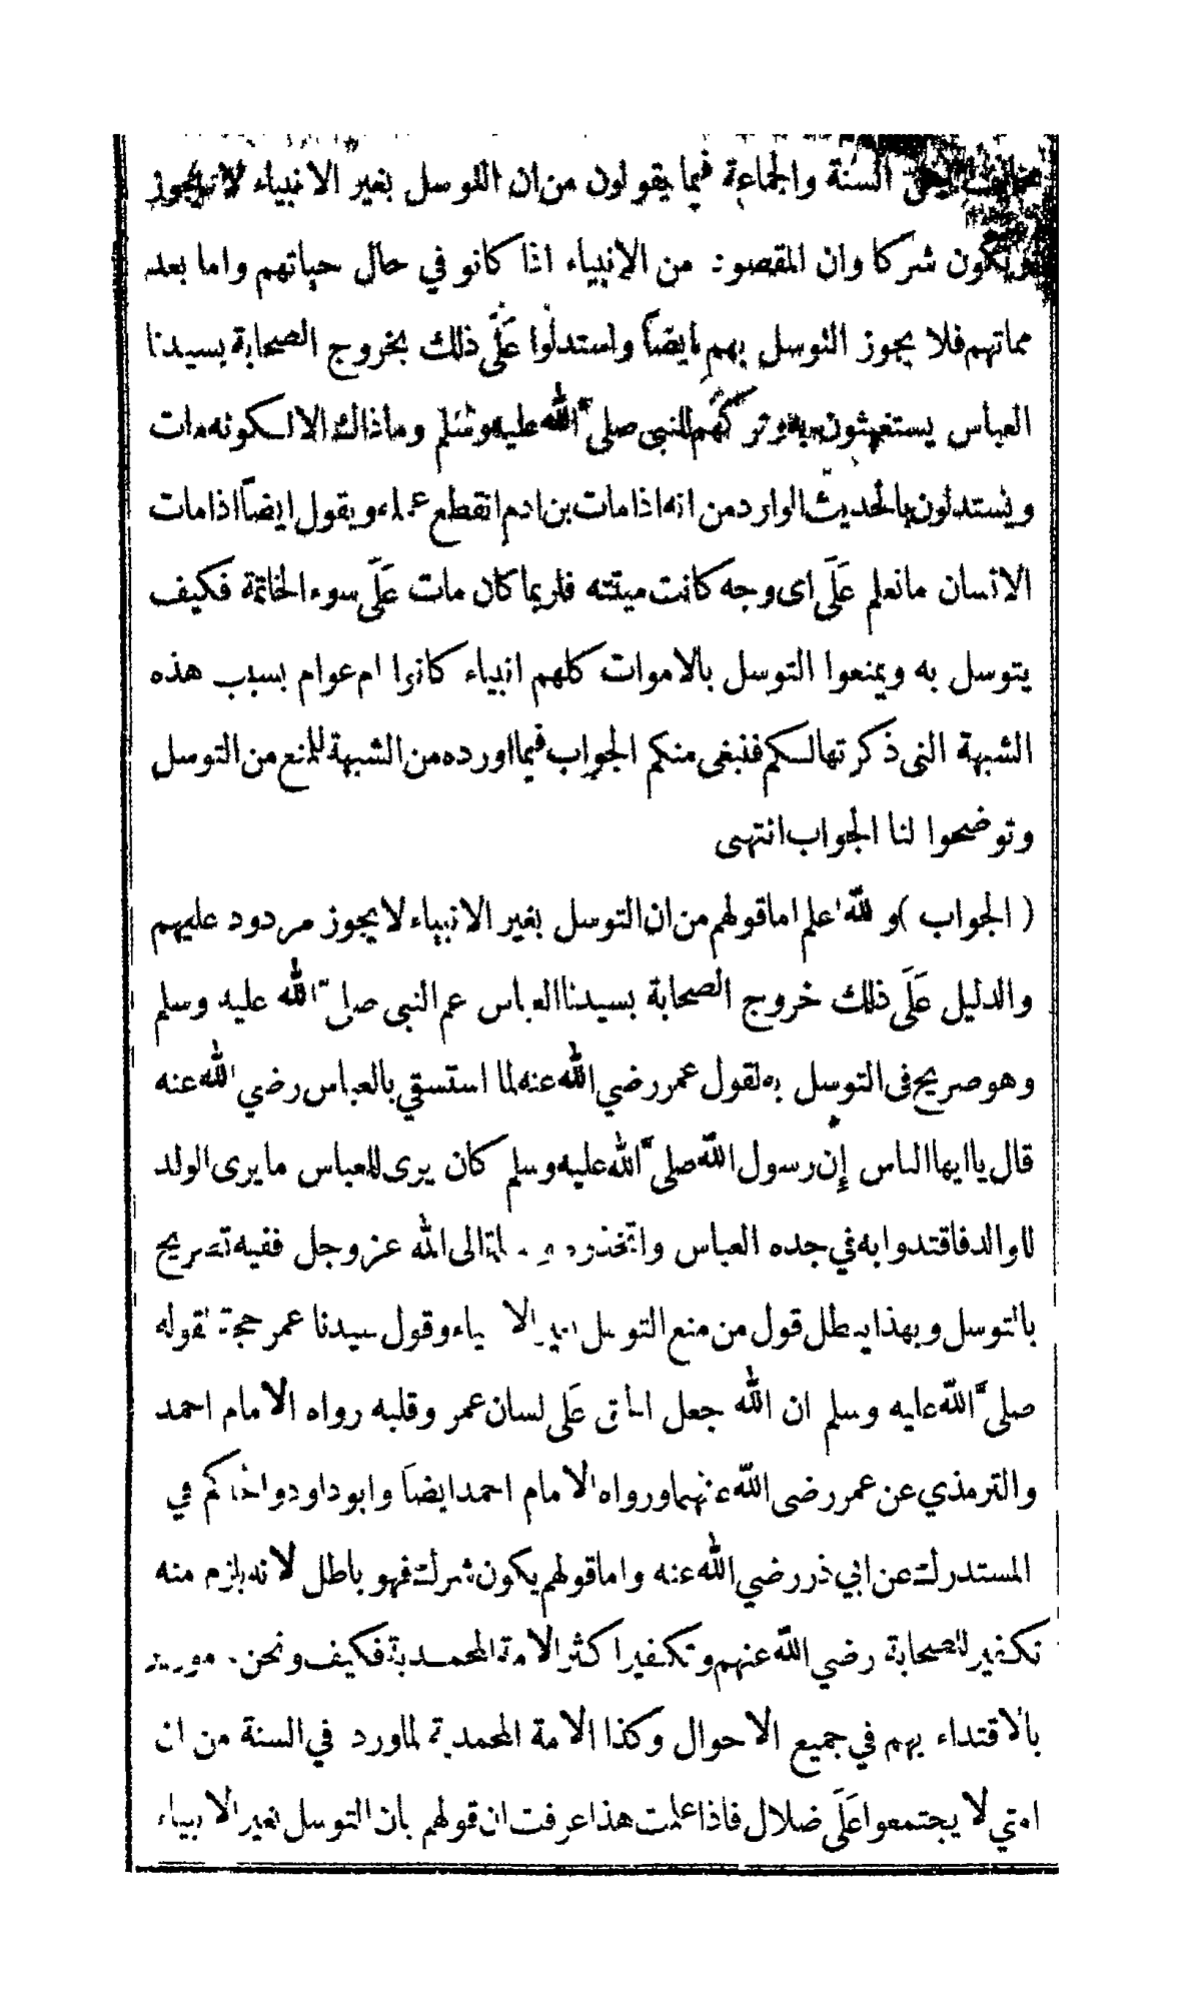 السنة والجماعة فيما يقولون من ان التوسل بغير الانبياء لا يجوز
ويكون شركا وان المقصود من الانبياء اذا كانو في حال حياتهم واما بعد
مماتهم فلا يجوز التوسل بهم ايضاً واستدلوا عَلَى ذلك بخروج الصحابة بسيدنا
العباس يستغيثون به وتركهم للنبى صلى الله عليه وسلم وماذاك الا لكونه مات
ويستدلون بالحديث الوارد من انه اذا مات بن ادم انقطع عمله ويقول ايضاً اذا مات
الانسان مانعلم عَلَى اى وجه كانت ميتته فلربما كان مات عَلَى سوء الخاتمة فكيف
يتوسل به ويمنعوا التوسل بالاموات كلهم انبياء كانوا ام عوام بسبب هذه
الشبهة التى ذكرتها لكم فنبغى منكم الجواب فيما اورده من الشبهة للمنع من التوسل
وتوضحوا لنا الجواب انتهى
( الجواب ) و لله اعلم اما قولهم من ان التوسل بغير الانبياء لا يجوز مردود عليهم
والدليل عَلَى ذلك خروج الصحابة بسيدنا العباس عم النبى صلى الله عليه وسلم
وهو صريح فى التوسل به لقول عمر رضي الله عنه لما استسقي بالعباس رضي الله عنه
قال يا ايها الناس إن رسول الله صلى الله عليه وسلم كان يرى للعباس ما يرى الولد
للوالد فاقتدوا به في جده العباس واتخذوه الى الله عز وجل ففيه تصريح
بالتوسل وبهذا يبطل قول من منع التوسل بغير الانبياء وقول سيدنا عمر حجة لقوله
صلى الله عليه وسلم ان الله جعل الحق عَلَى لسان عمر وقلبه رواه الامام احمد
والترمذي عن عمر رضى الله عنهما ورواه الامام احمد ايضاً وابو داود والحاكم في
المستدرك عن ابي ذر رضي الله عنه واما قولهم يكون شرك فهو باطل لانه يلزم منه
تكفير للصحابة رضي الله عنهم وتكفير اكثر الامة المحمدية فكيف ونحن مورين
بالاقتداء بهم في جميع الاحوال وكذا الامة المحمدية لما ورد في السنة من ان
امتي لا يجتمعوا عَلَى ضلال فاذا علمت هذا عرفت ان قولهم بان التوسل بغير الانبياء